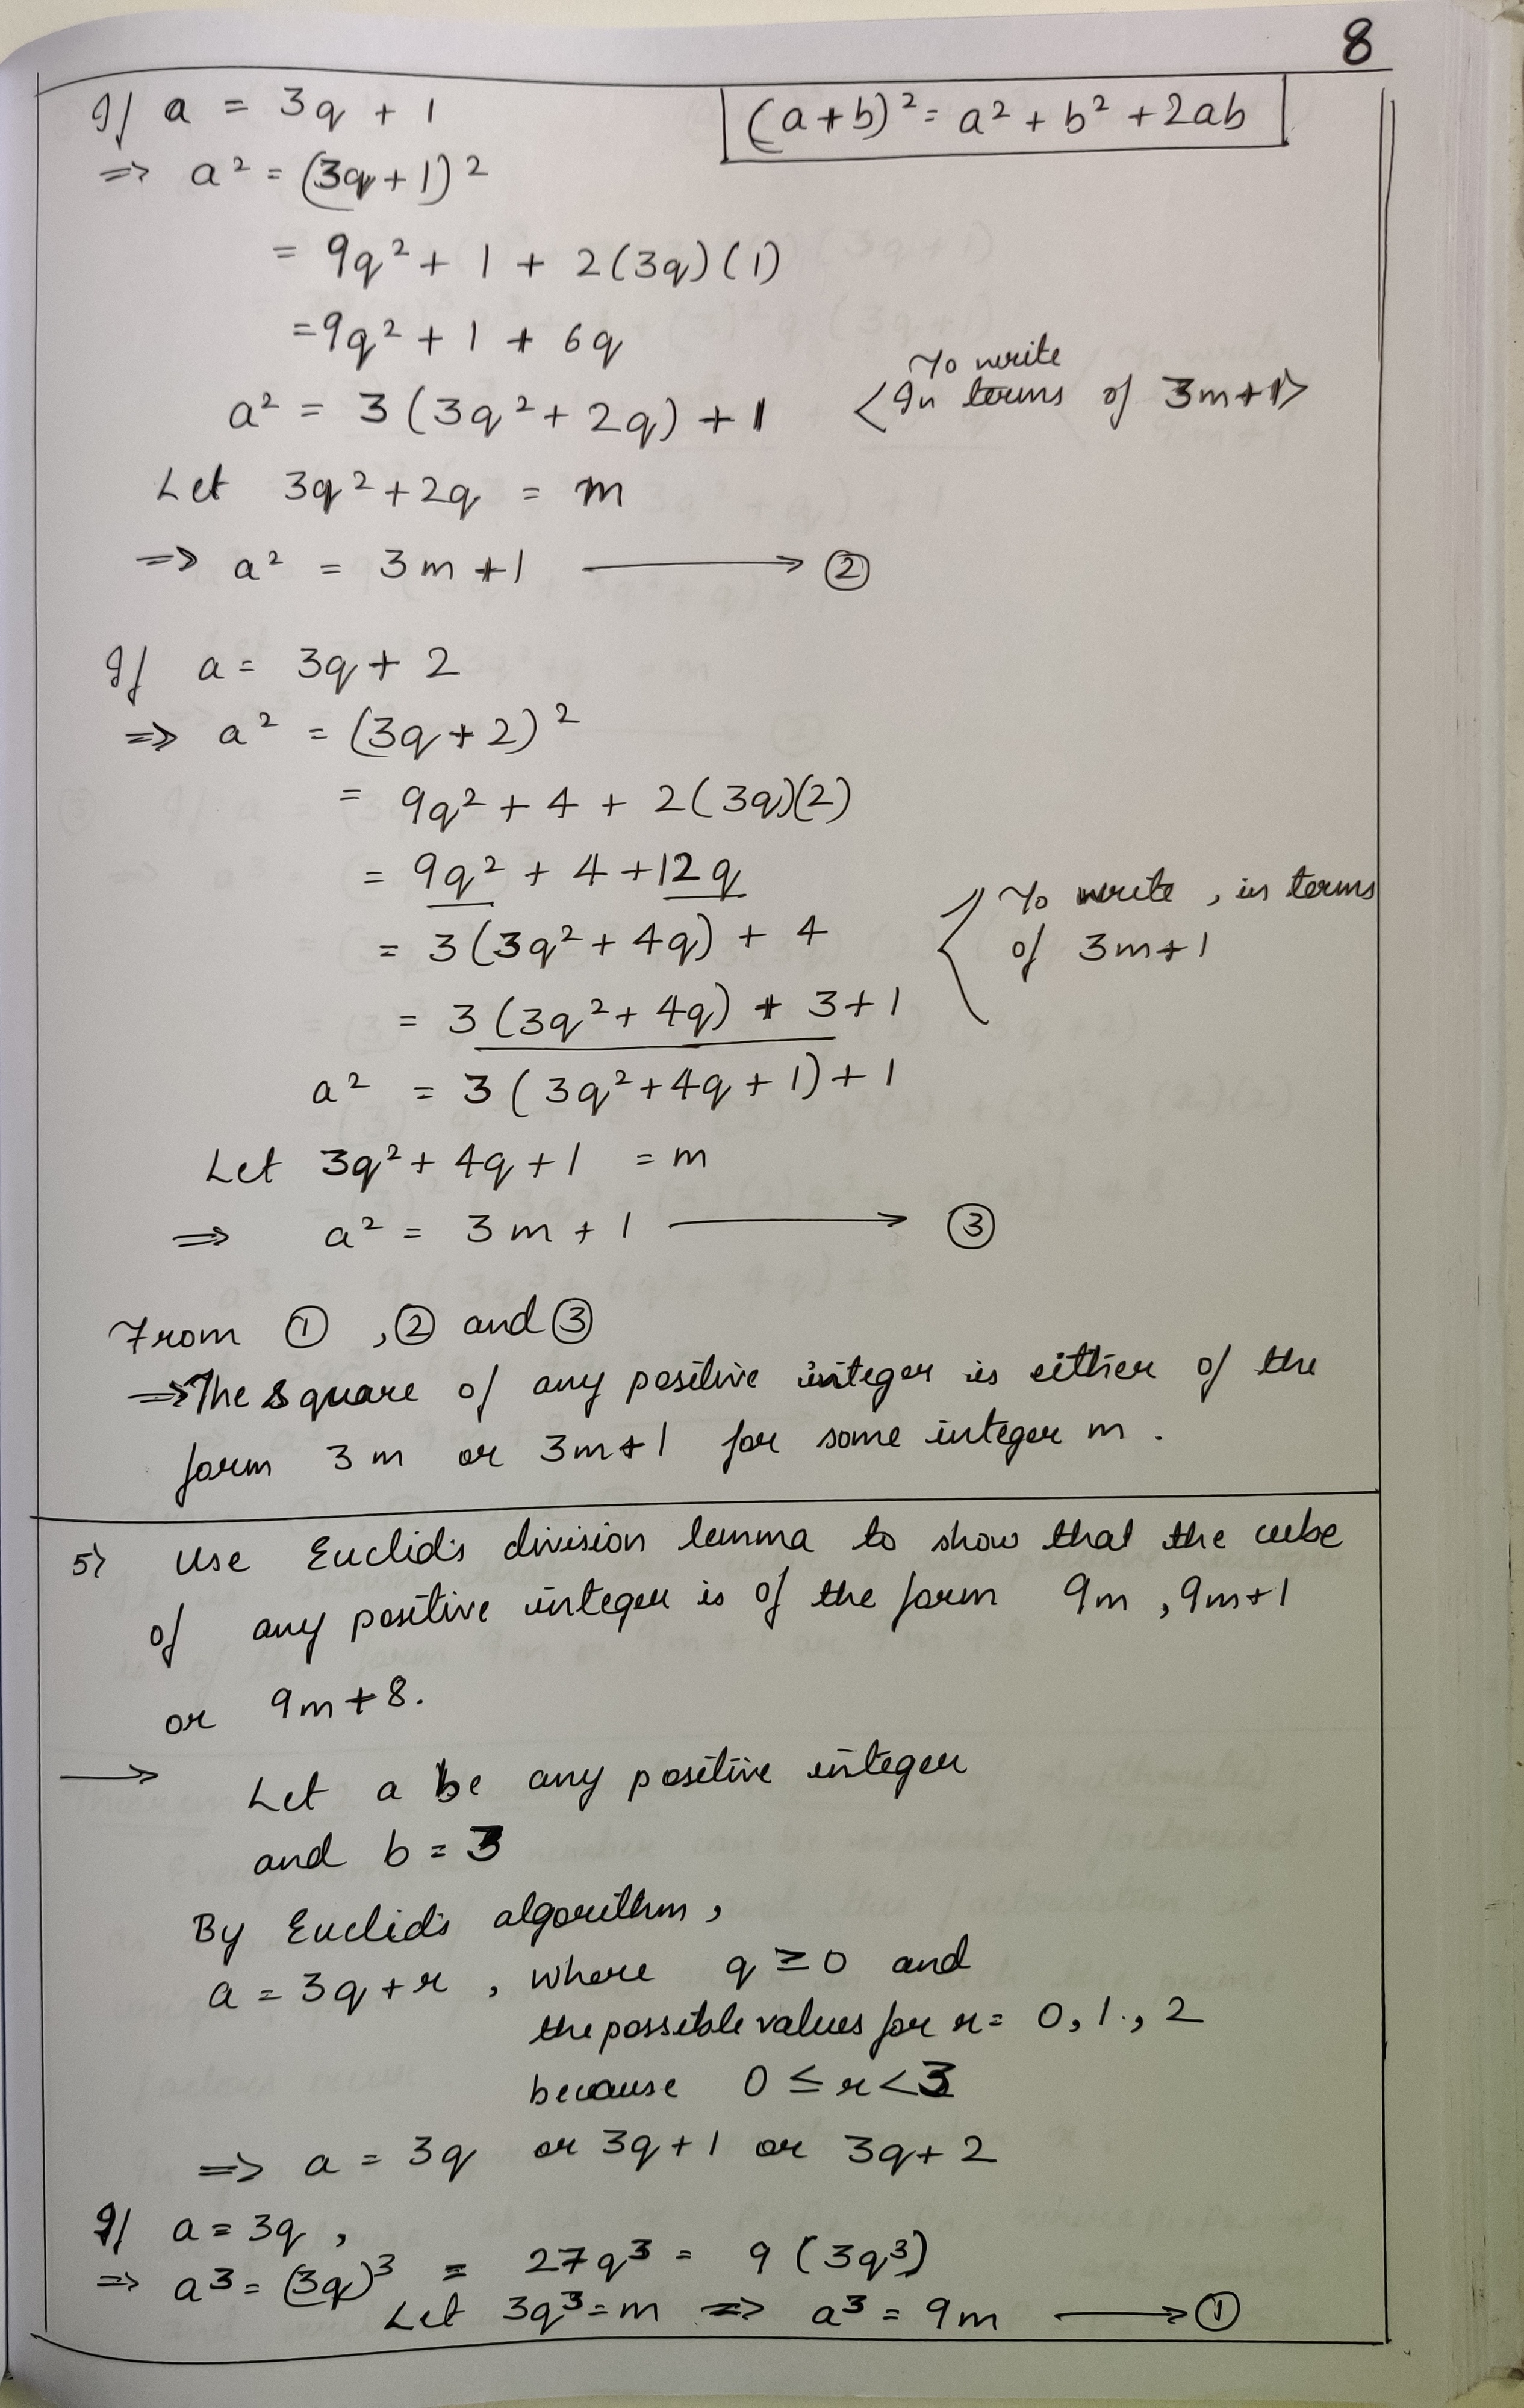 8
If a = 3q + 1
(a+b)² = a² + b² + 2ab
⇒ a² = (3q+1)²
= 9q² + 1 + 2(3q)(1)
= 9q² + 1 + 6q
a² = 3(3q² + 2q) + 1
To write
<In terms of 3m+1>
Let 3q² + 2q = m
⇒ a² = 3m + 1 ⟶ ②
If a = 3q + 2
⇒ a² = (3q+2)²
= 9q² + 4 + 2(3q)(2)
= 9q² + 4 + 12q
= 3(3q² + 4q) + 4
To write, in terms
of 3m+1
= 3(3q² + 4q) + 3 + 1
a² = 3(3q² + 4q + 1) + 1
Let 3q² + 4q + 1 = m
⇒ a² = 3m + 1 ⟶ ③
From ①, ② and ③
⇒ The square of any positive integer is either of the
form 3m or 3m+1 for some integer m.
5) Use Euclid's division lemma to show that the cube
of any positive integer is of the form 9m, 9m+1
or 9m+8.
⟶ Let a be any positive integer
and b = 3
By Euclid's algorithm,
a = 3q + r, where q ≥ 0 and
the possible values for r = 0, 1, 2
because 0 ≤ r < 3
⇒ a = 3q or 3q+1 or 3q+2
If a = 3q,
⇒ a³ = (3q)³ = 27q³ = 9(3q³)
Let 3q³ = m ⇒ a³ = 9m ⟶ ①